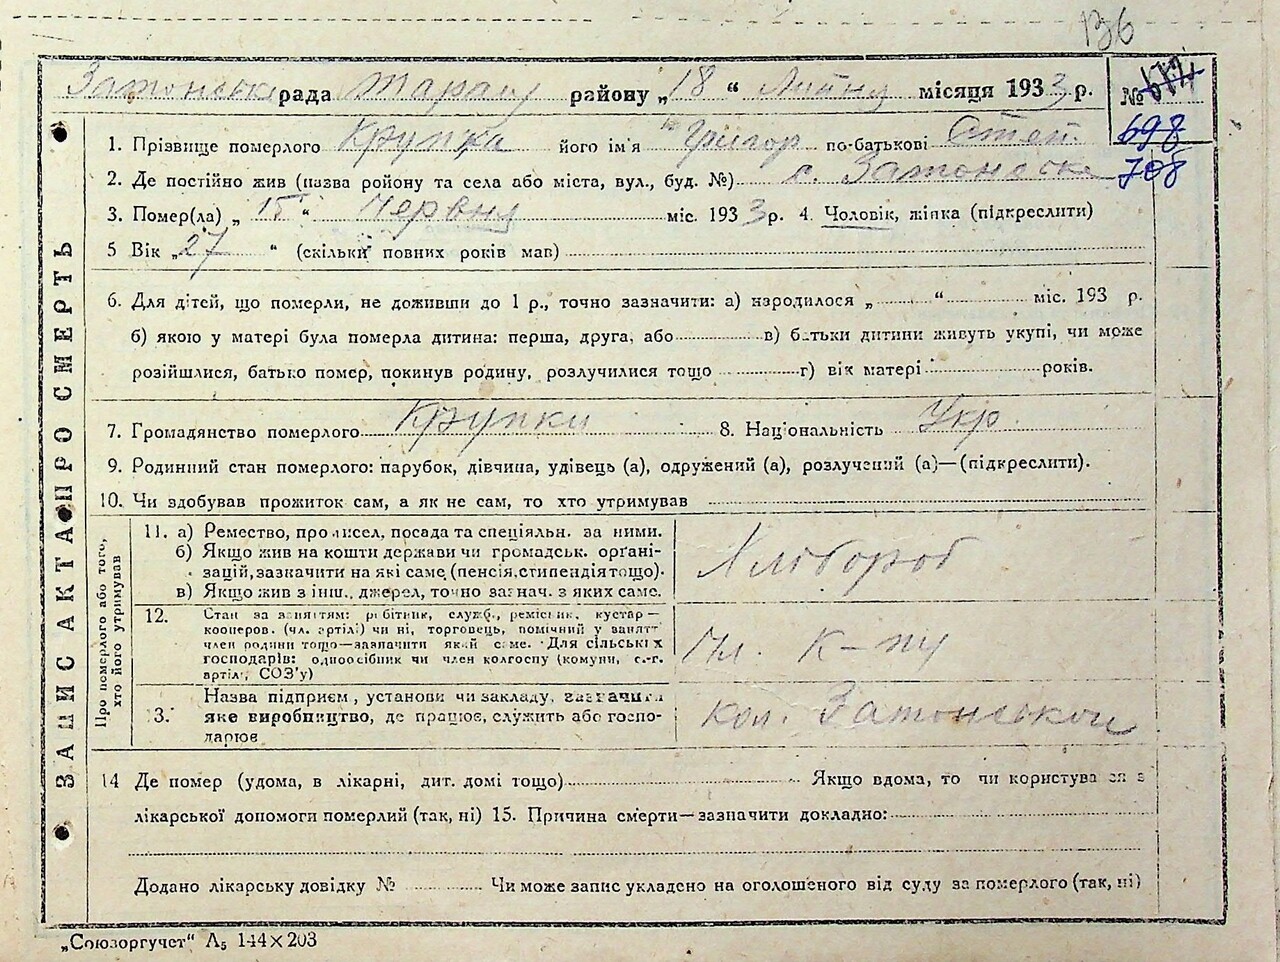 136
Затонська рада Таращ району „18“ Липня місяця 1933 р. №
698
1. Прізвище померлого Крупка його ім'я Григор по-батькові Степ.
2. Де постійно жив (назва ройону та села або міста, вул., буд. №) с. Затонське 708
3. Помер(ла) „15“ Червня міс. 1933 р. 4. Чоловік, жінка (підкреслити)
5 Вік „27“ (скільки повних років мав)
6. Для дітей, що померли, не доживши до 1 р., точно зазначити: а) народилося „ “ міс. 193 р.
б) якою у матері була померла дитина: перша, друга, або в) батьки дитини живуть укупі, чи може
розійшлися, батько помер, покинув родину, розлучилися тощо г) вік матері років.
7. Громадянство померлого Крупки 8. Національність Укр.
9. Родинний стан померлого: парубок, дівчина, удівець (а), одружений (а), розлучений (а)—(підкреслити).
10. Чи здобував прожиток сам, а як не сам, то хто утримував
ЗАПИС АКТА ПРО СМЕРТЬ
Про померлого або того, хто його утримував
11. а) Ремество, промисел, посада та спеціяльн. за ними.
б) Якщо жив на кошти держави чи громадськ. органі-
зацій, зазначити на які саме (пенсія, стипендія тощо).
в) Якщо жив з інш. джерел, точно зазнач. з яких саме.
Хлібороб
12. Стан за заняттям: робітник, служб., ремісник, кустар—
кооперов. (чл. артілі) чи ні, торговець, помічний у занятт
член родини тощо—зазначити який саме. Для сільських
господарів: одноосібник чи член колгоспу (комуни, с.-г.
артілі, СОЗ'у)
Чл. К-пу
3. Назва підприєм., установи чи закладу, зазначити
яке виробництво, де працює, служить або госпо-
дарює
Кол. Затонською
14 Де помер (удома, в лікарні, дит. домі тощо) Якщо вдома, то чи користувався з
лікарської допомоги померлий (так, ні) 15. Причина смерти—зазначити докладно:
Додано лікарську довідку № Чи може запис укладено на оголошеного від суду за померлого (так, ні)
„Союзоргучет“ А₅ 144×203